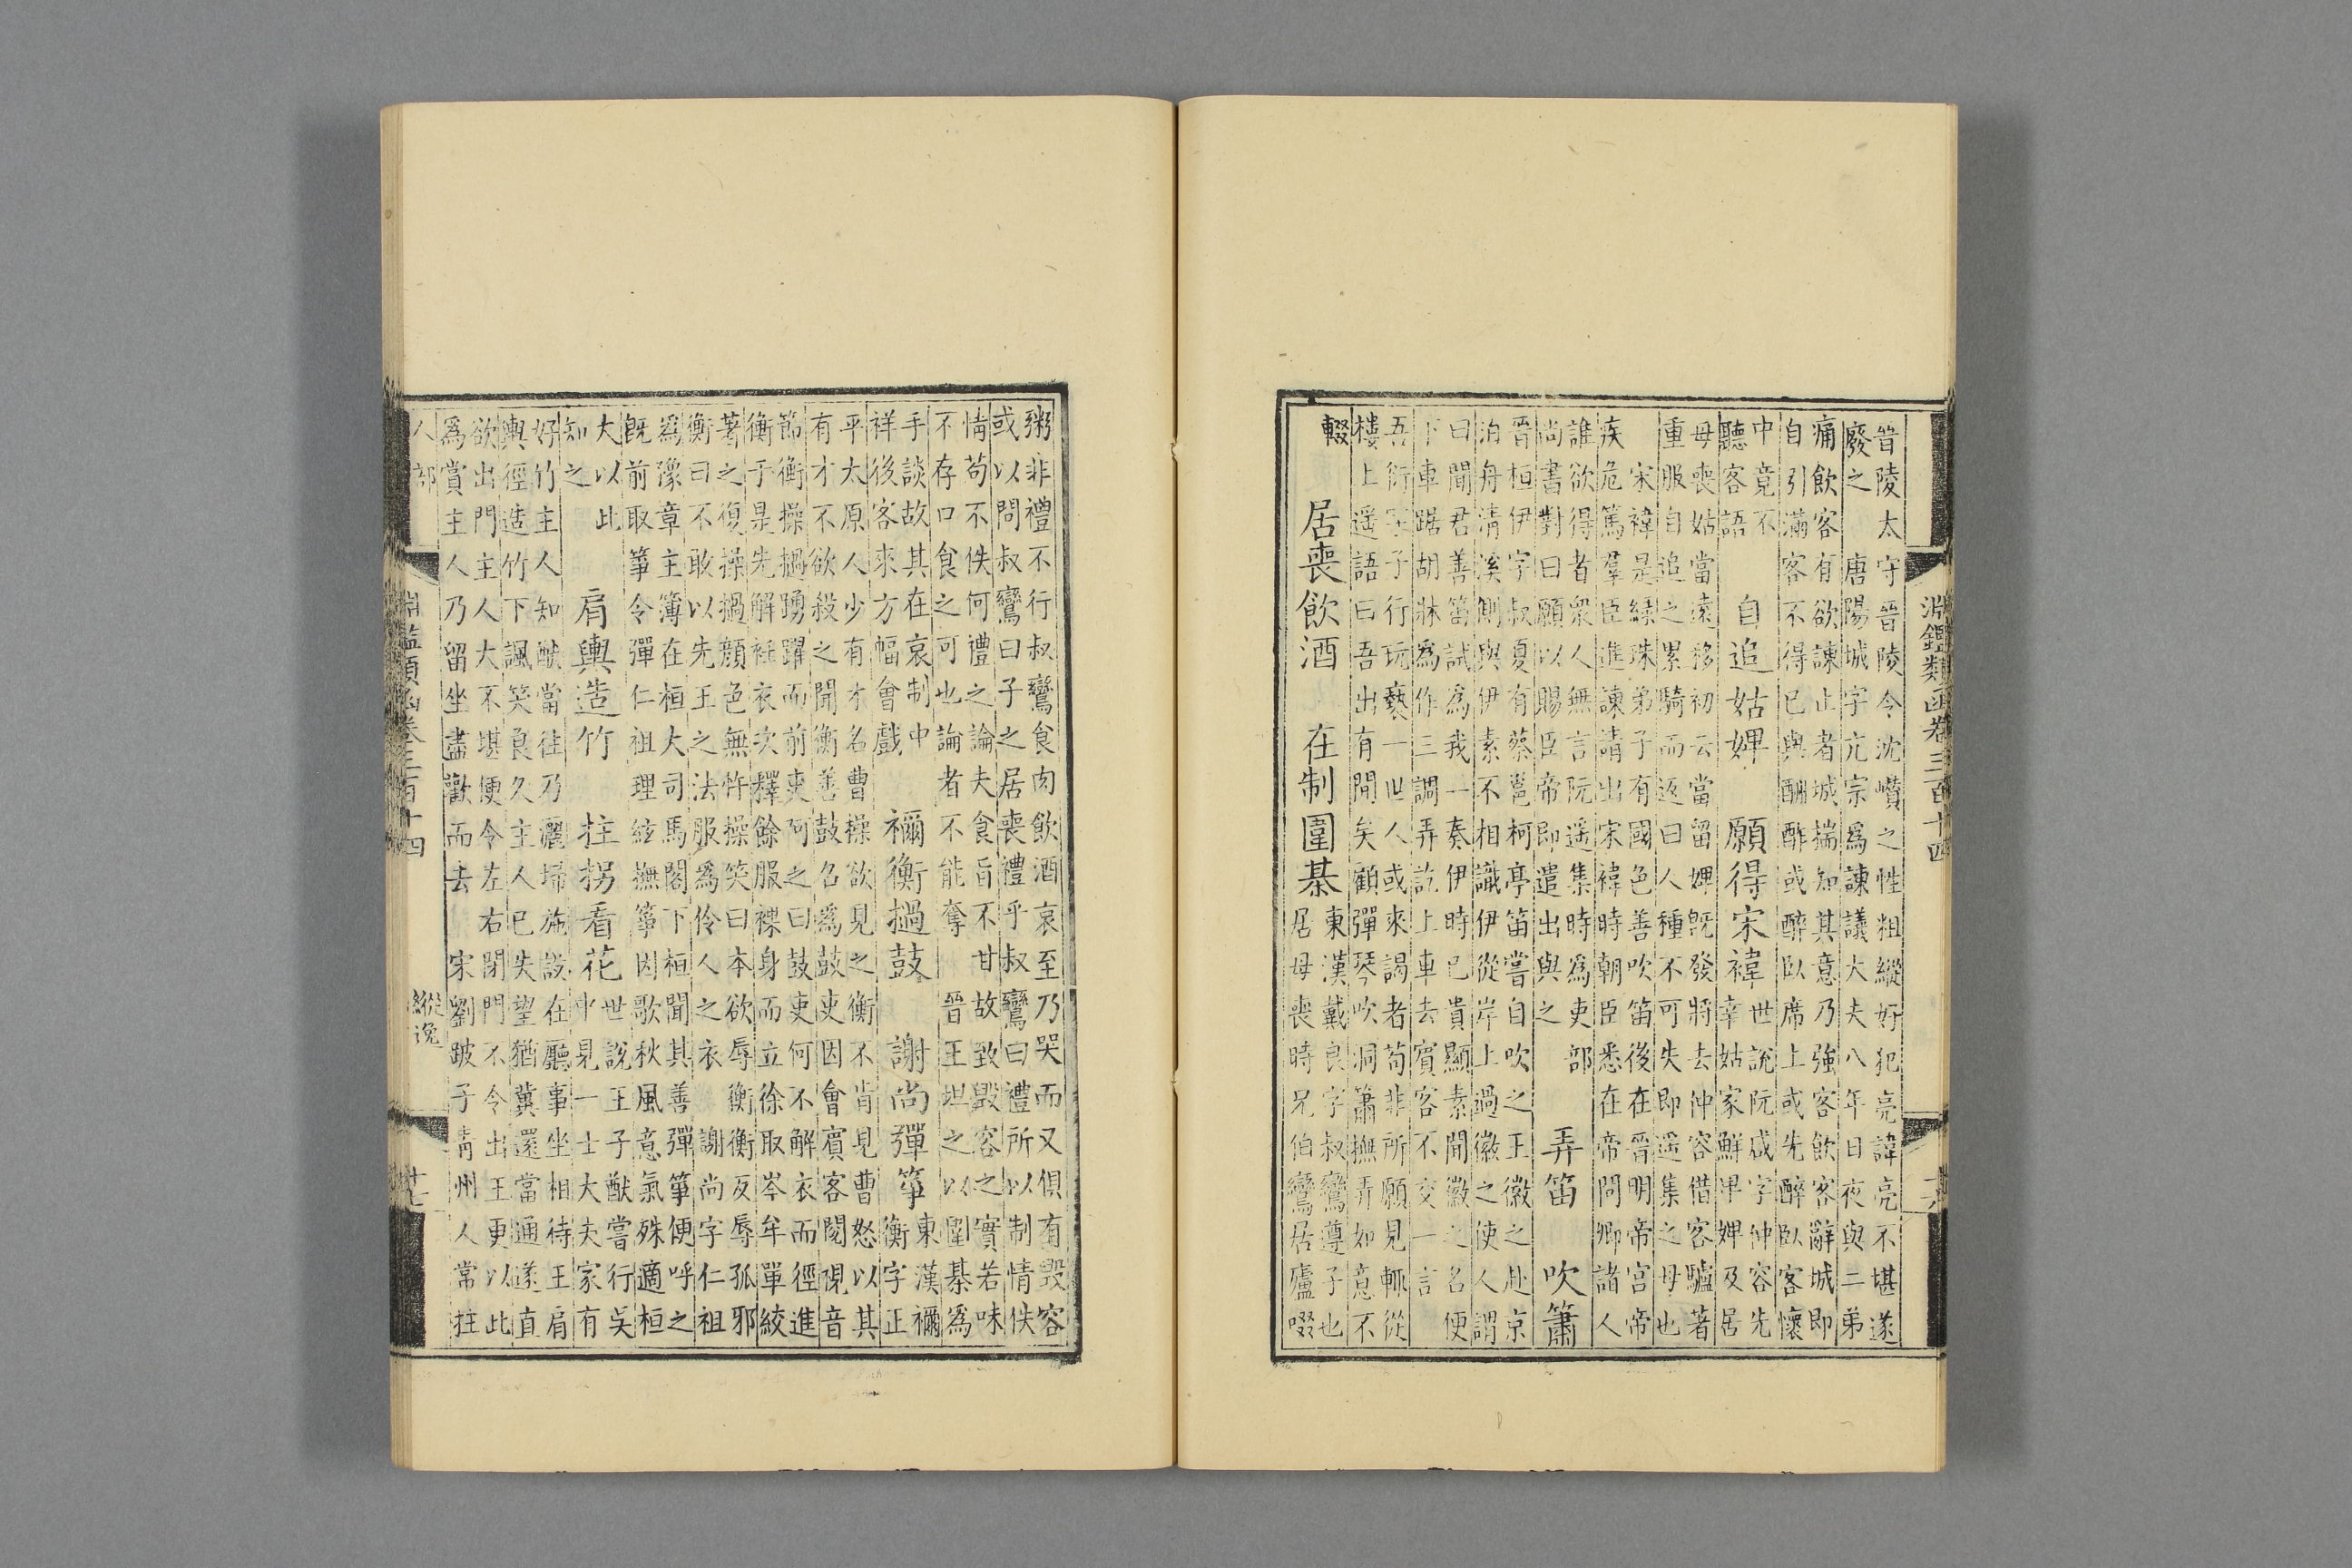 淵鑑類函卷三百十四
晉陵太守晉陵令沈巑之性粗縱好犯亮諱亮不堪遂
廢之　唐陽城字亢宗爲諫議大夫八年日夜與二弟
痛飲客有欲諫止者城揣知其意乃強客飲客辭城即
自引滿客不得已與酬酢或醉臥席上或先醉臥客懷
中竟不
聽客語
自追姑婢　願得宋褘
世說阮咸字仲容先
幸姑家鮮卑婢及居
母喪姑當遠移初云當留婢既發將去仲容借客驢著
重服自追之累騎而返曰人種不可失即遥集之母也
宋褘是緑珠弟子有國色善吹笛後在晉明帝宮帝
疾危篤羣臣進諫請出宋褘時朝臣悉在帝問卿諸人
誰欲得者衆人無言阮遥集時爲吏部
尚書對曰願以賜臣帝即遣出與之
弄笛　吹簫
晉桓伊字叔夏有蔡邕柯亭笛嘗自吹之王徽之赴京
泊舟清溪側與伊素不相識伊從岸上過徽之使人謂
曰聞君善笛試爲我一奏伊時已貴顯素聞徽之名便
下車踞胡牀爲作三調弄訖上車去賓客不交一言
吾衍字子行玩藝一世人或來謁者苟非所願見輒從
樓上遥語曰吾出有間矣顧彈琴吹洞簫撫弄如意不
輟
居喪飲酒　在制圍棊
東漢戴良字叔鸞遵子也
居母喪時兄伯鸞居廬啜
粥非禮不行叔鸞食肉飲酒哀至乃哭而又俱有毀容
或以問叔鸞曰子之居喪禮乎叔鸞曰禮所以制情佚
情苟不佚何禮之論夫食旨不甘故致毀容之實若味
不存口食之可也論者不能奪　晉王坦之以圍棊爲
手談故其在哀制中
祥後客來方幅會戲
禰衡撾鼓　謝尚彈箏
東漢禰
衡字正
平太原人少有才名曹操欲見之衡不肯見曹怒以其
有才不欲殺之聞衡善鼓名爲鼓吏因會賓客閱視音
節衡操撾踴躍而前吏呵之曰鼓吏何不解衣而徑進
衡于是先解衽衣次釋餘服裸身而立徐取岑牟單絞
著之復操撾顔色無怍操笑曰本欲辱衡衡反辱孤邪
衡曰不敢以先王之法服爲伶人之衣　謝尚字仁祖
爲豫章主簿在桓大司馬閣下桓聞其善彈箏便呼之
既前取箏令彈仁祖理絃撫箏因歌秋風意氣殊適桓
大以此
知之
肩輿造竹　拄拐看花
世說王子猷嘗行吳
中見一士大夫家有
好竹竹主人知猷當往乃灑埽施設在廳事坐相待王肩
輿徑造竹下諷笑良久主人已失望猶冀還當通遂直
欲出門主人大不堪便令左右閉門不令出王更以此
爲賞主人乃留坐盡歡而去　宋劉跛子青州人常拄
人部
淵鑑類函卷三百十四
縱逸
十七